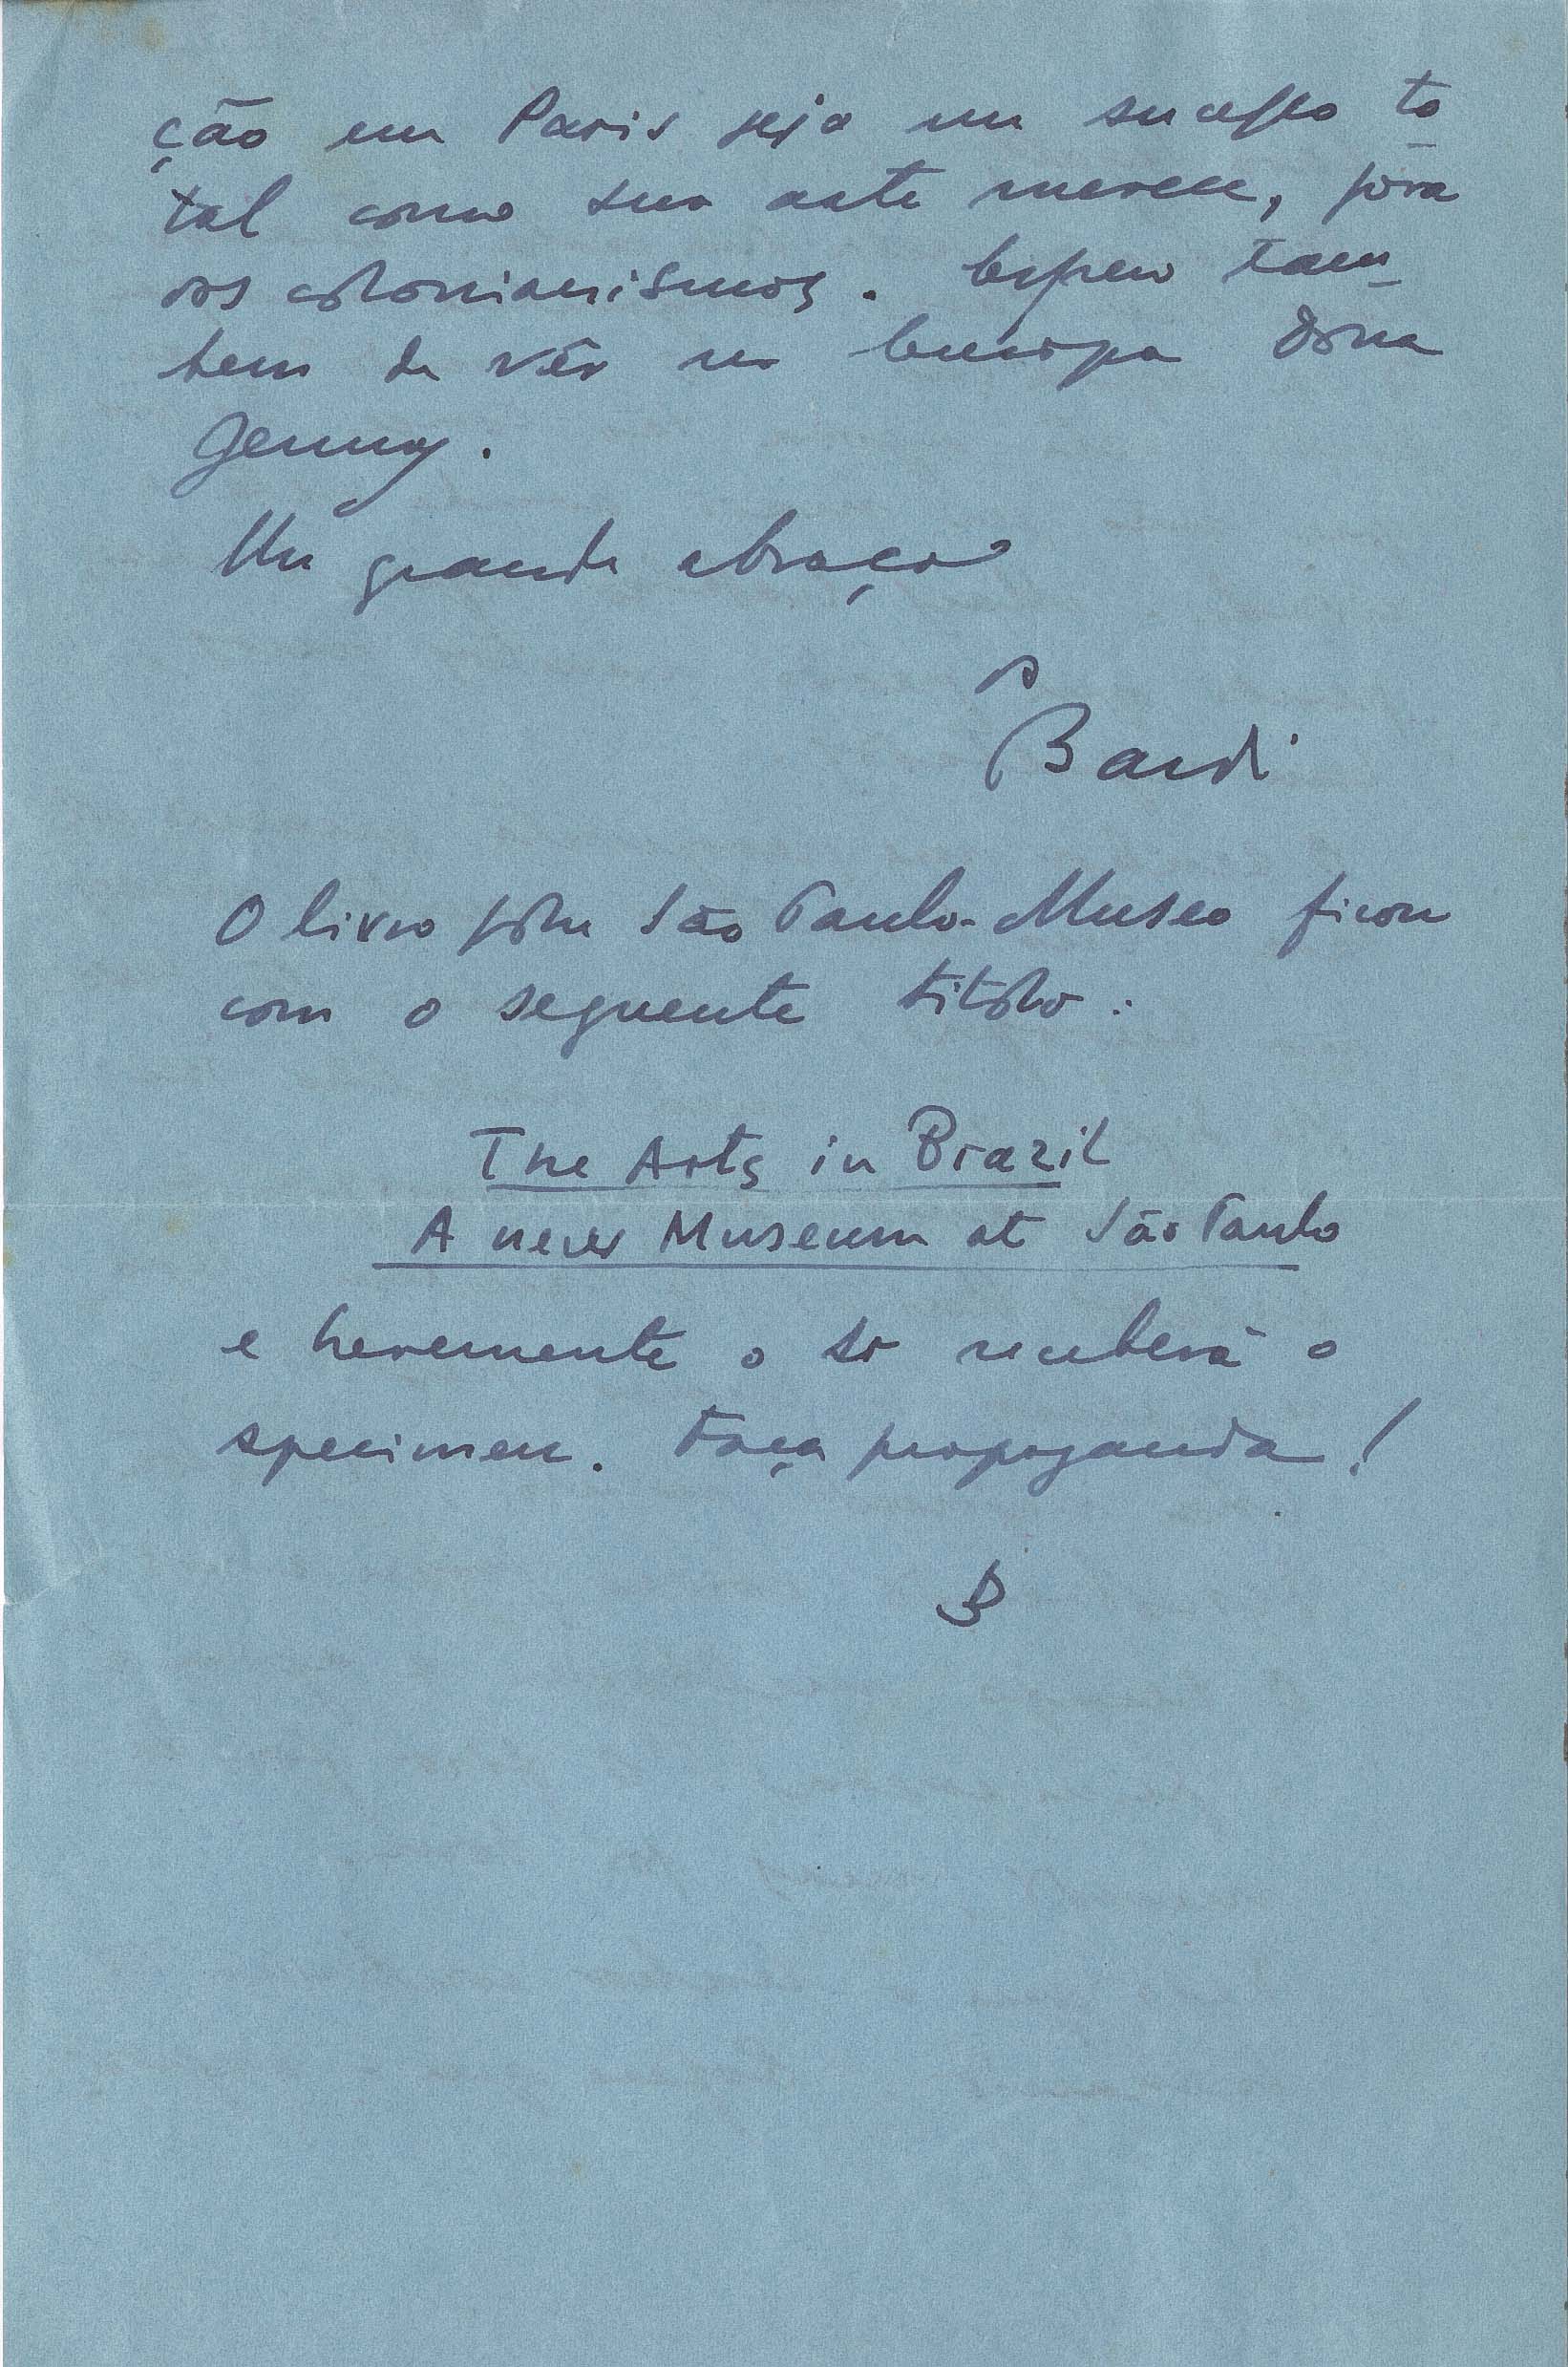 ção em Paris seja um sucesso to
tal como sua arte merece, fóra
os colonianismos. Espero tam
bem de vêr na Europa dona
Jenny.
Um grande abraço
P Bardi
O livro sobre São Paulo-Museo ficou
com o seguente titolo:
The Arts in Brazil
A new Museum at São Paulo
e brevemente o sr receberá o
specimen. Faça propaganda!
B